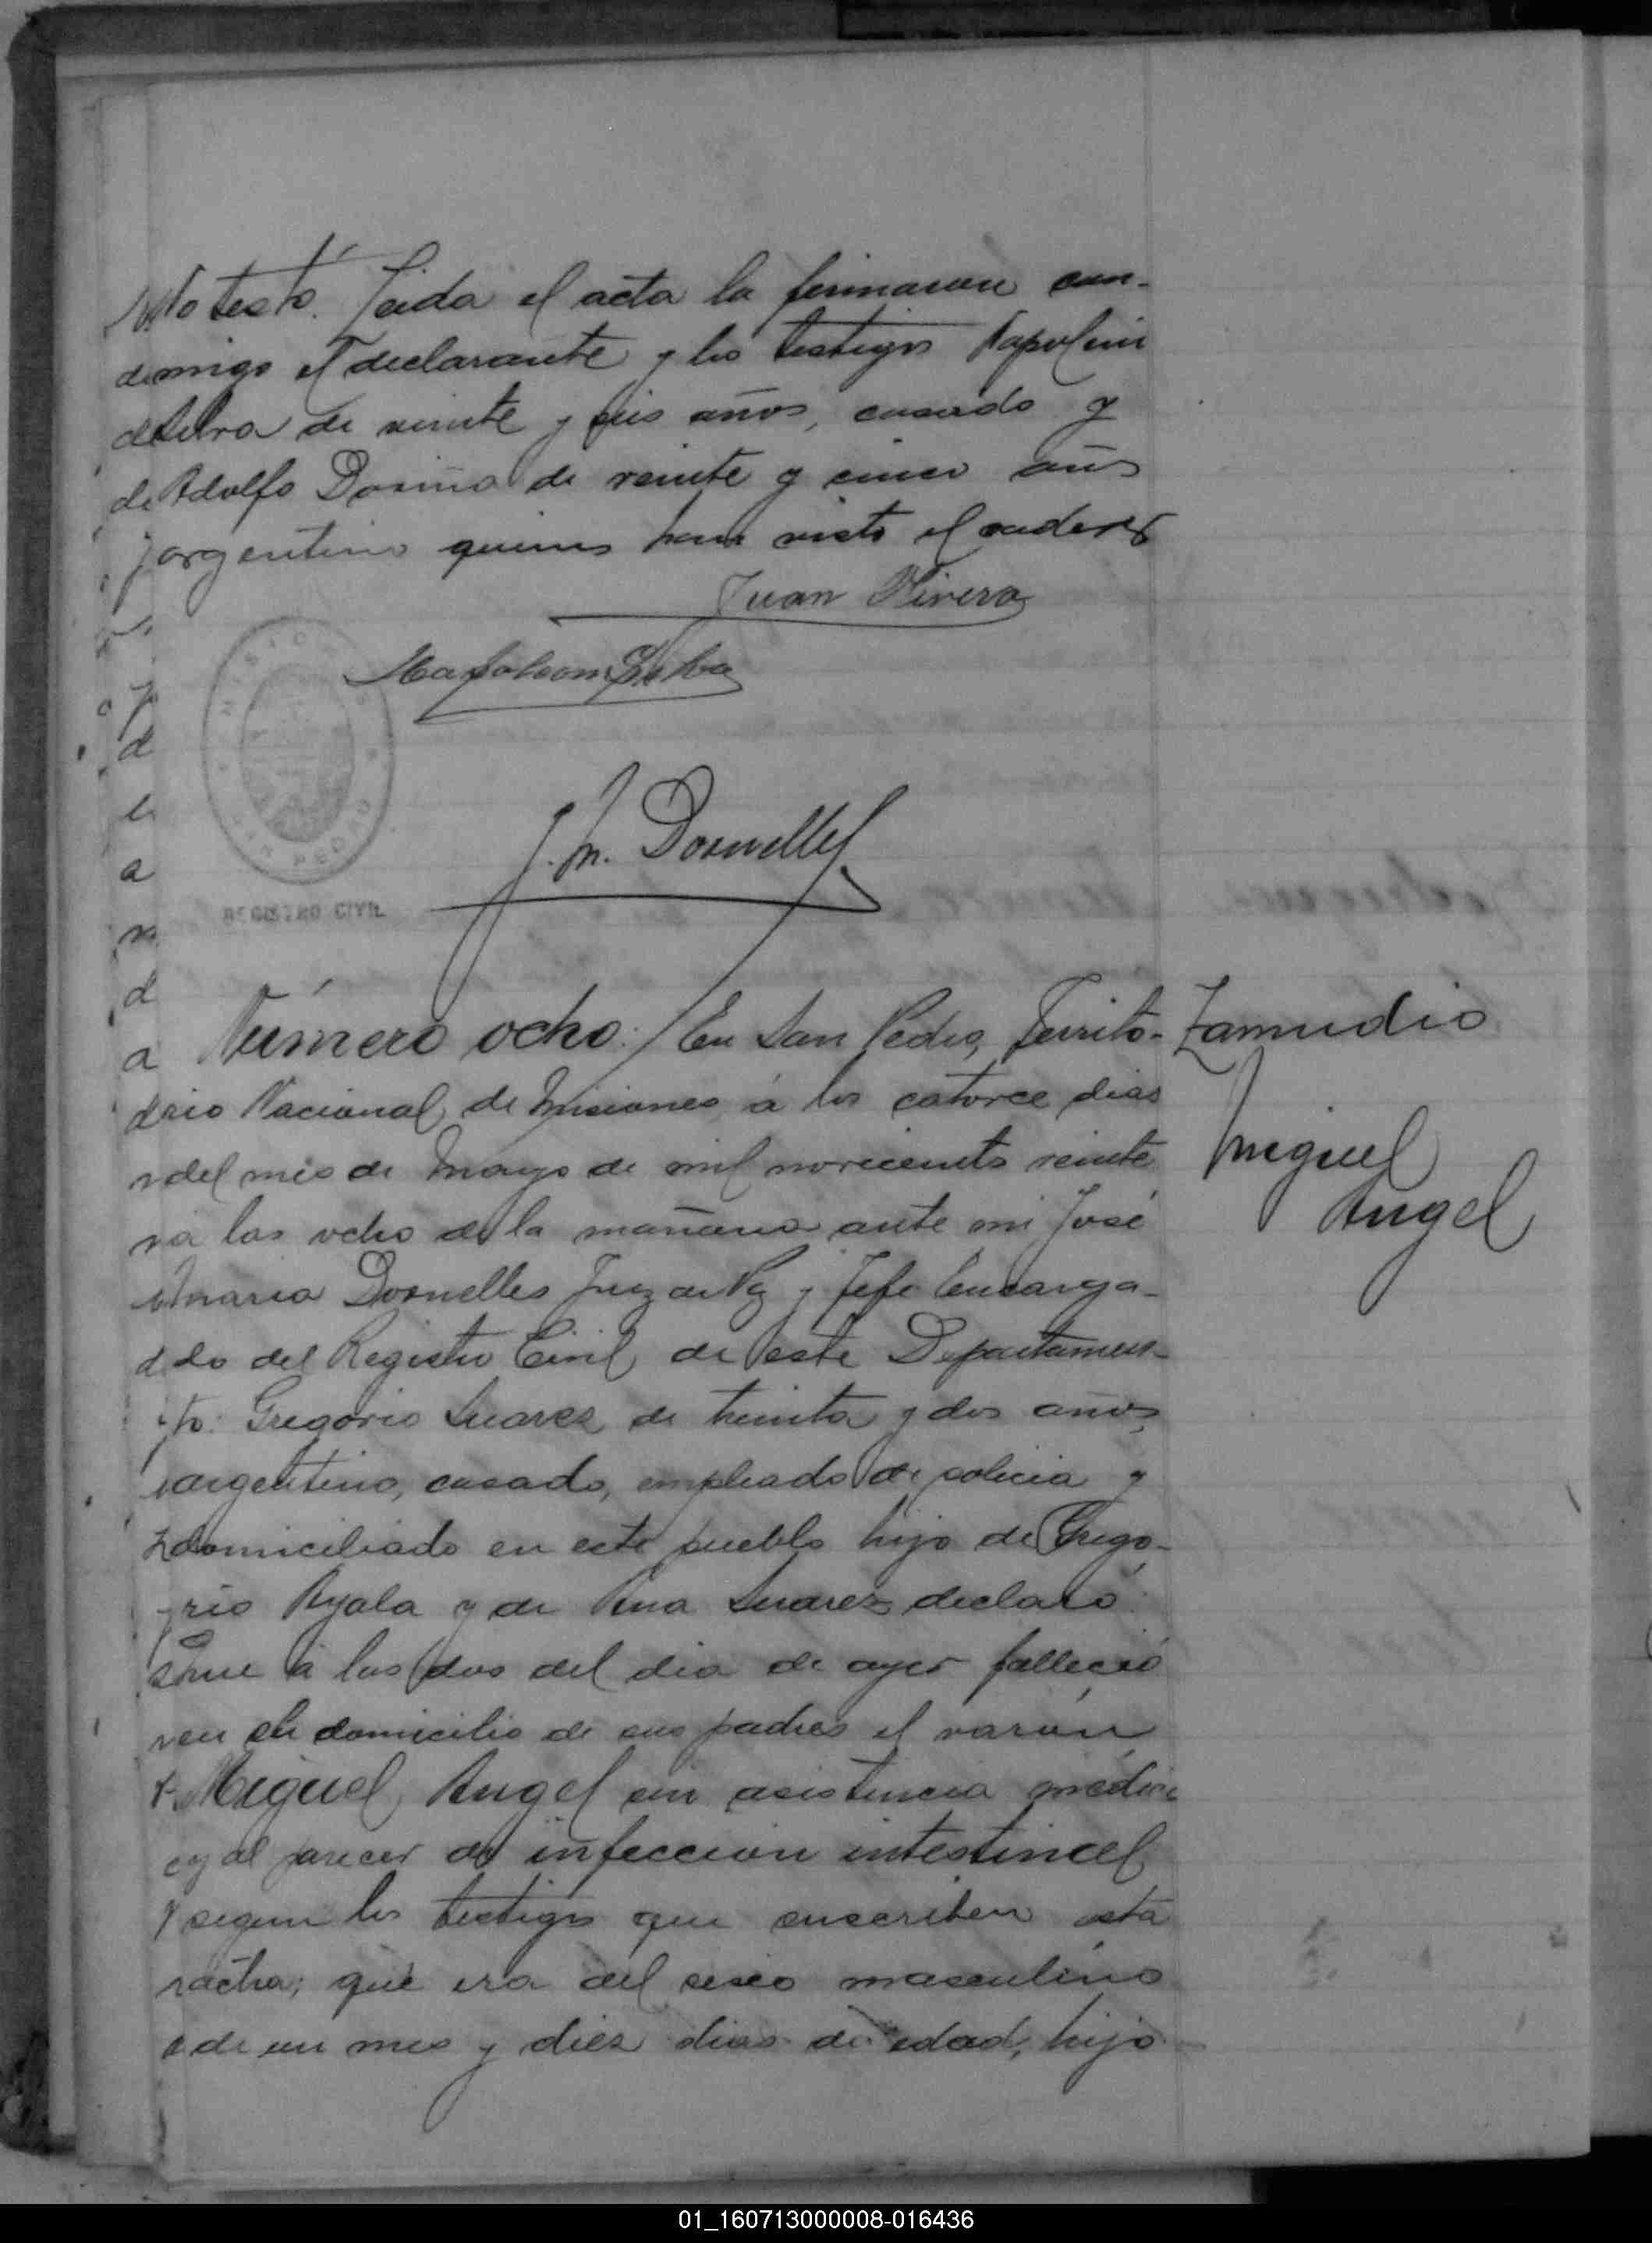 testó. Leida el acta la firmaron con-
migo el declarante y los testigos Napoleon
Silva de veinte y seis años, casado y
Adolfo de veinte y cinco años
argentino quienes han visto el cadaver
Juan Rivero
Napoleon Silva
MISIONES
SAN PEDRO
REGISTRO CIVIL
J. M. Dornelles
Número ocho: En San Pedro, Territo-
rio Nacional de Misiones á los catorce dias
del mes de Mayo de mil novecientos veinte
a las ocho de la mañana ante mi José
Maria Dornelles Juez de Paz y Jefe Encarga-
do del Registro Civil de este Departamen-
to: Gregorio Suarez de treinta y dos años,
argentino, casado, empleado de policia y
domiciliado en este pueblo hijo de Grego-
rio Ayala y de Ana Suarez declaró:
Que á las dos del dia de ayer falleció
en el domicilio de sus padres el varón
Miguel Angel sin asistencia médica
y al parecer de infeccion intestinal
segun los testigos que suscriben esta
acta; que era del sexo masculino
de un mes y diez dias de edad, hijo
Zamudio
Miguel
Angel
01_160713000008-016436